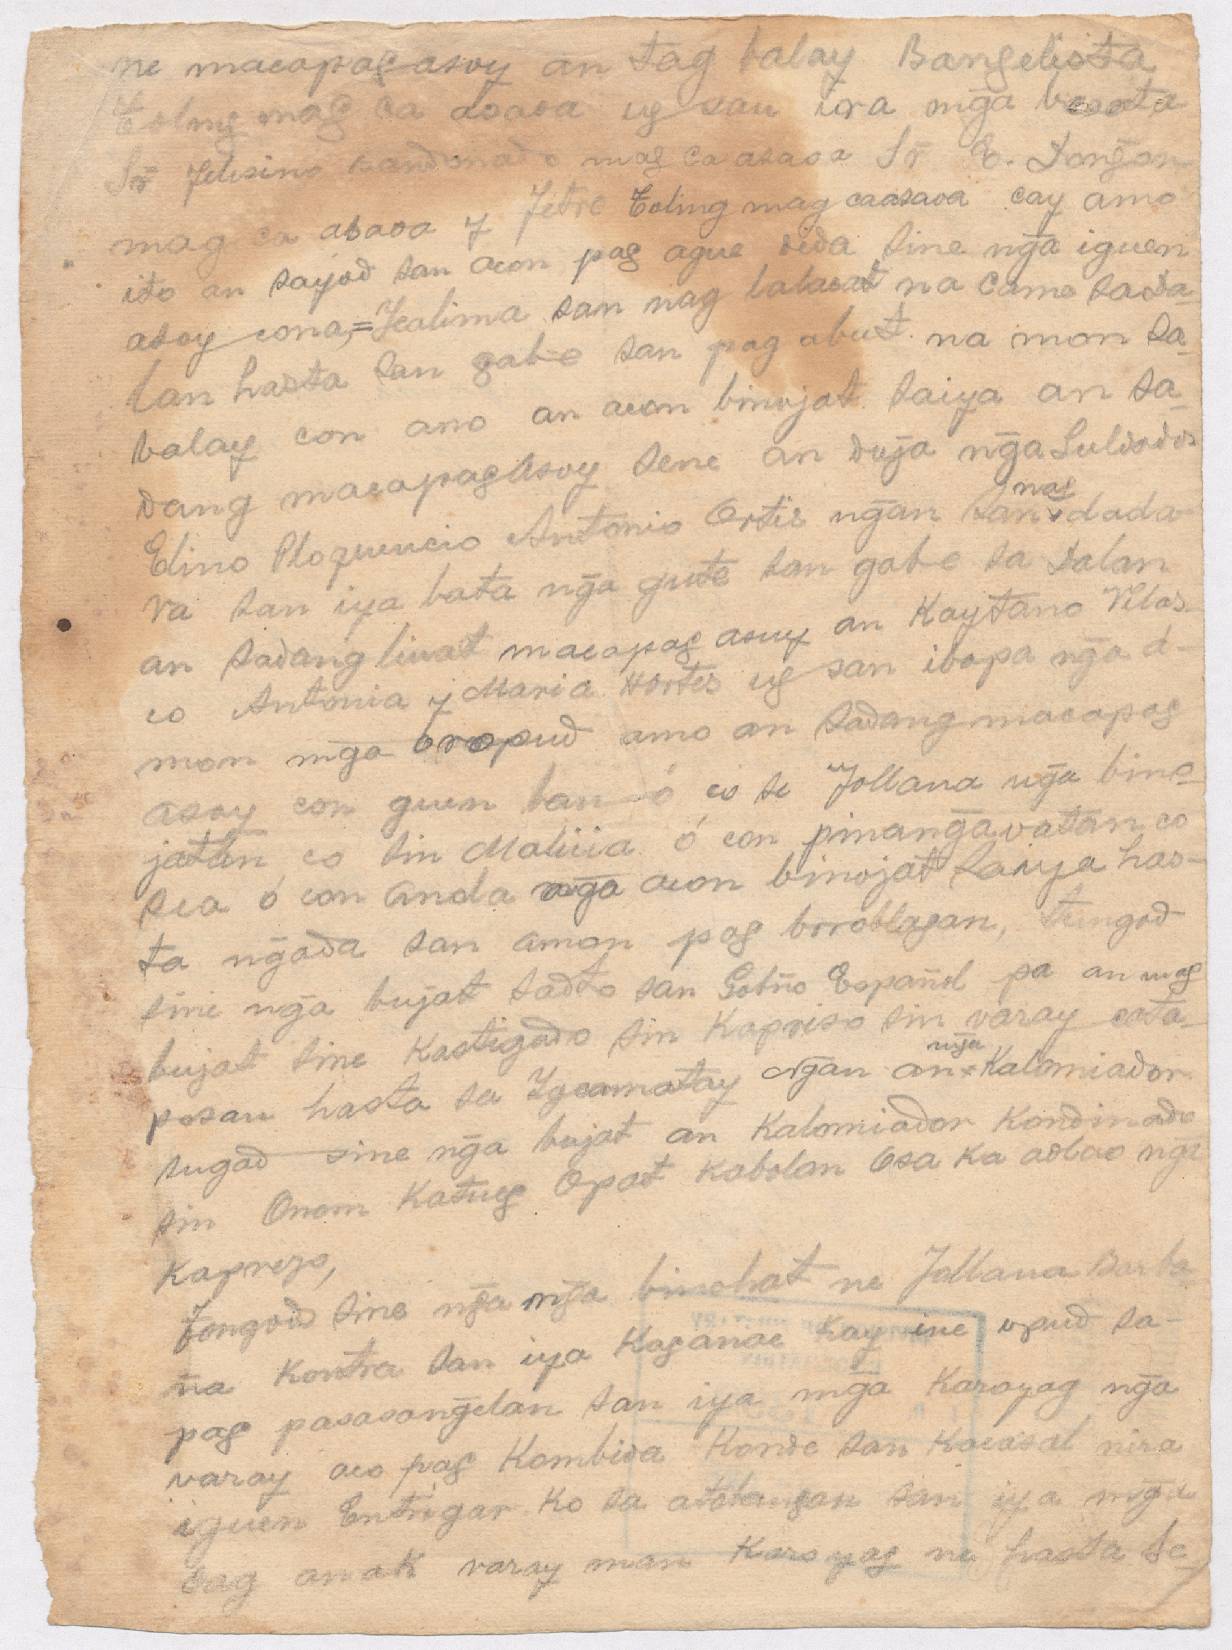 ne macapag asoy an tag balay Bangelista
Toling mag ca asaoa ug sau ira mg̃a besita
Sr̃ Felisino mag ca asaoa Sr̃ E. Dongon
mag ca asaoa y Fetre Toling mag caasaoa cay amo
ito an sayod san acon pag ague sida sine ng̃a iguen
asoy cona,= Icalima san nag labasat na camo sa Da-
lan hasta san gabe san pag abut na mon sa
balay con ano an acon binojat saiya an sa-
dang macapag asoy sene an duja ng̃a Suldados
Edino Ploquencio Antonio Ortis ng̃an san nag dada-
ra san iya bata ng̃a gute san gabe sa Dalan
an sadang liwat macapag asuy an Kaytano Velas-
co Antonia y Maria Hortes ug san ibapa ng̃a a-
mon mg̃a oropud amo an sadang macapag
asoy con guen ban ó co se Jolliana ng̃a bino-
jatan co sin Malicia ó con pinang̃avatan co
sea ó con anda ng̃a acon binojat saiya has-
ta ng̃ada san amon pag boroblagan, tungod
sine ng̃a bujat sadto san Gobño Español pa an mag
bujat sine Kastigado sin Kapriso sin varay cata-
posan hasta sa Igcamatay ng̃an an ng̃a Kalomiador
sugad sine ng̃a bujat an Kalomiador Kondinado
sin Onom Katueg Opat Kabolan Osa Ka adlao ng̃a
Kaprezo,
Tongod sine ng̃a mg̃a binohat ne Jolliana Barba
ña Kontra san iya Kaganac Kay ine upud sa-
pag pasasang̃elan san iya mg̃a Karayag ng̃a
varay aco pag Kombida Konde san Kacasal nira
iguen Entrigar Ko sa atobang̃an san iya mg̃a
tag anak varay man Karoyag ne hasta se-